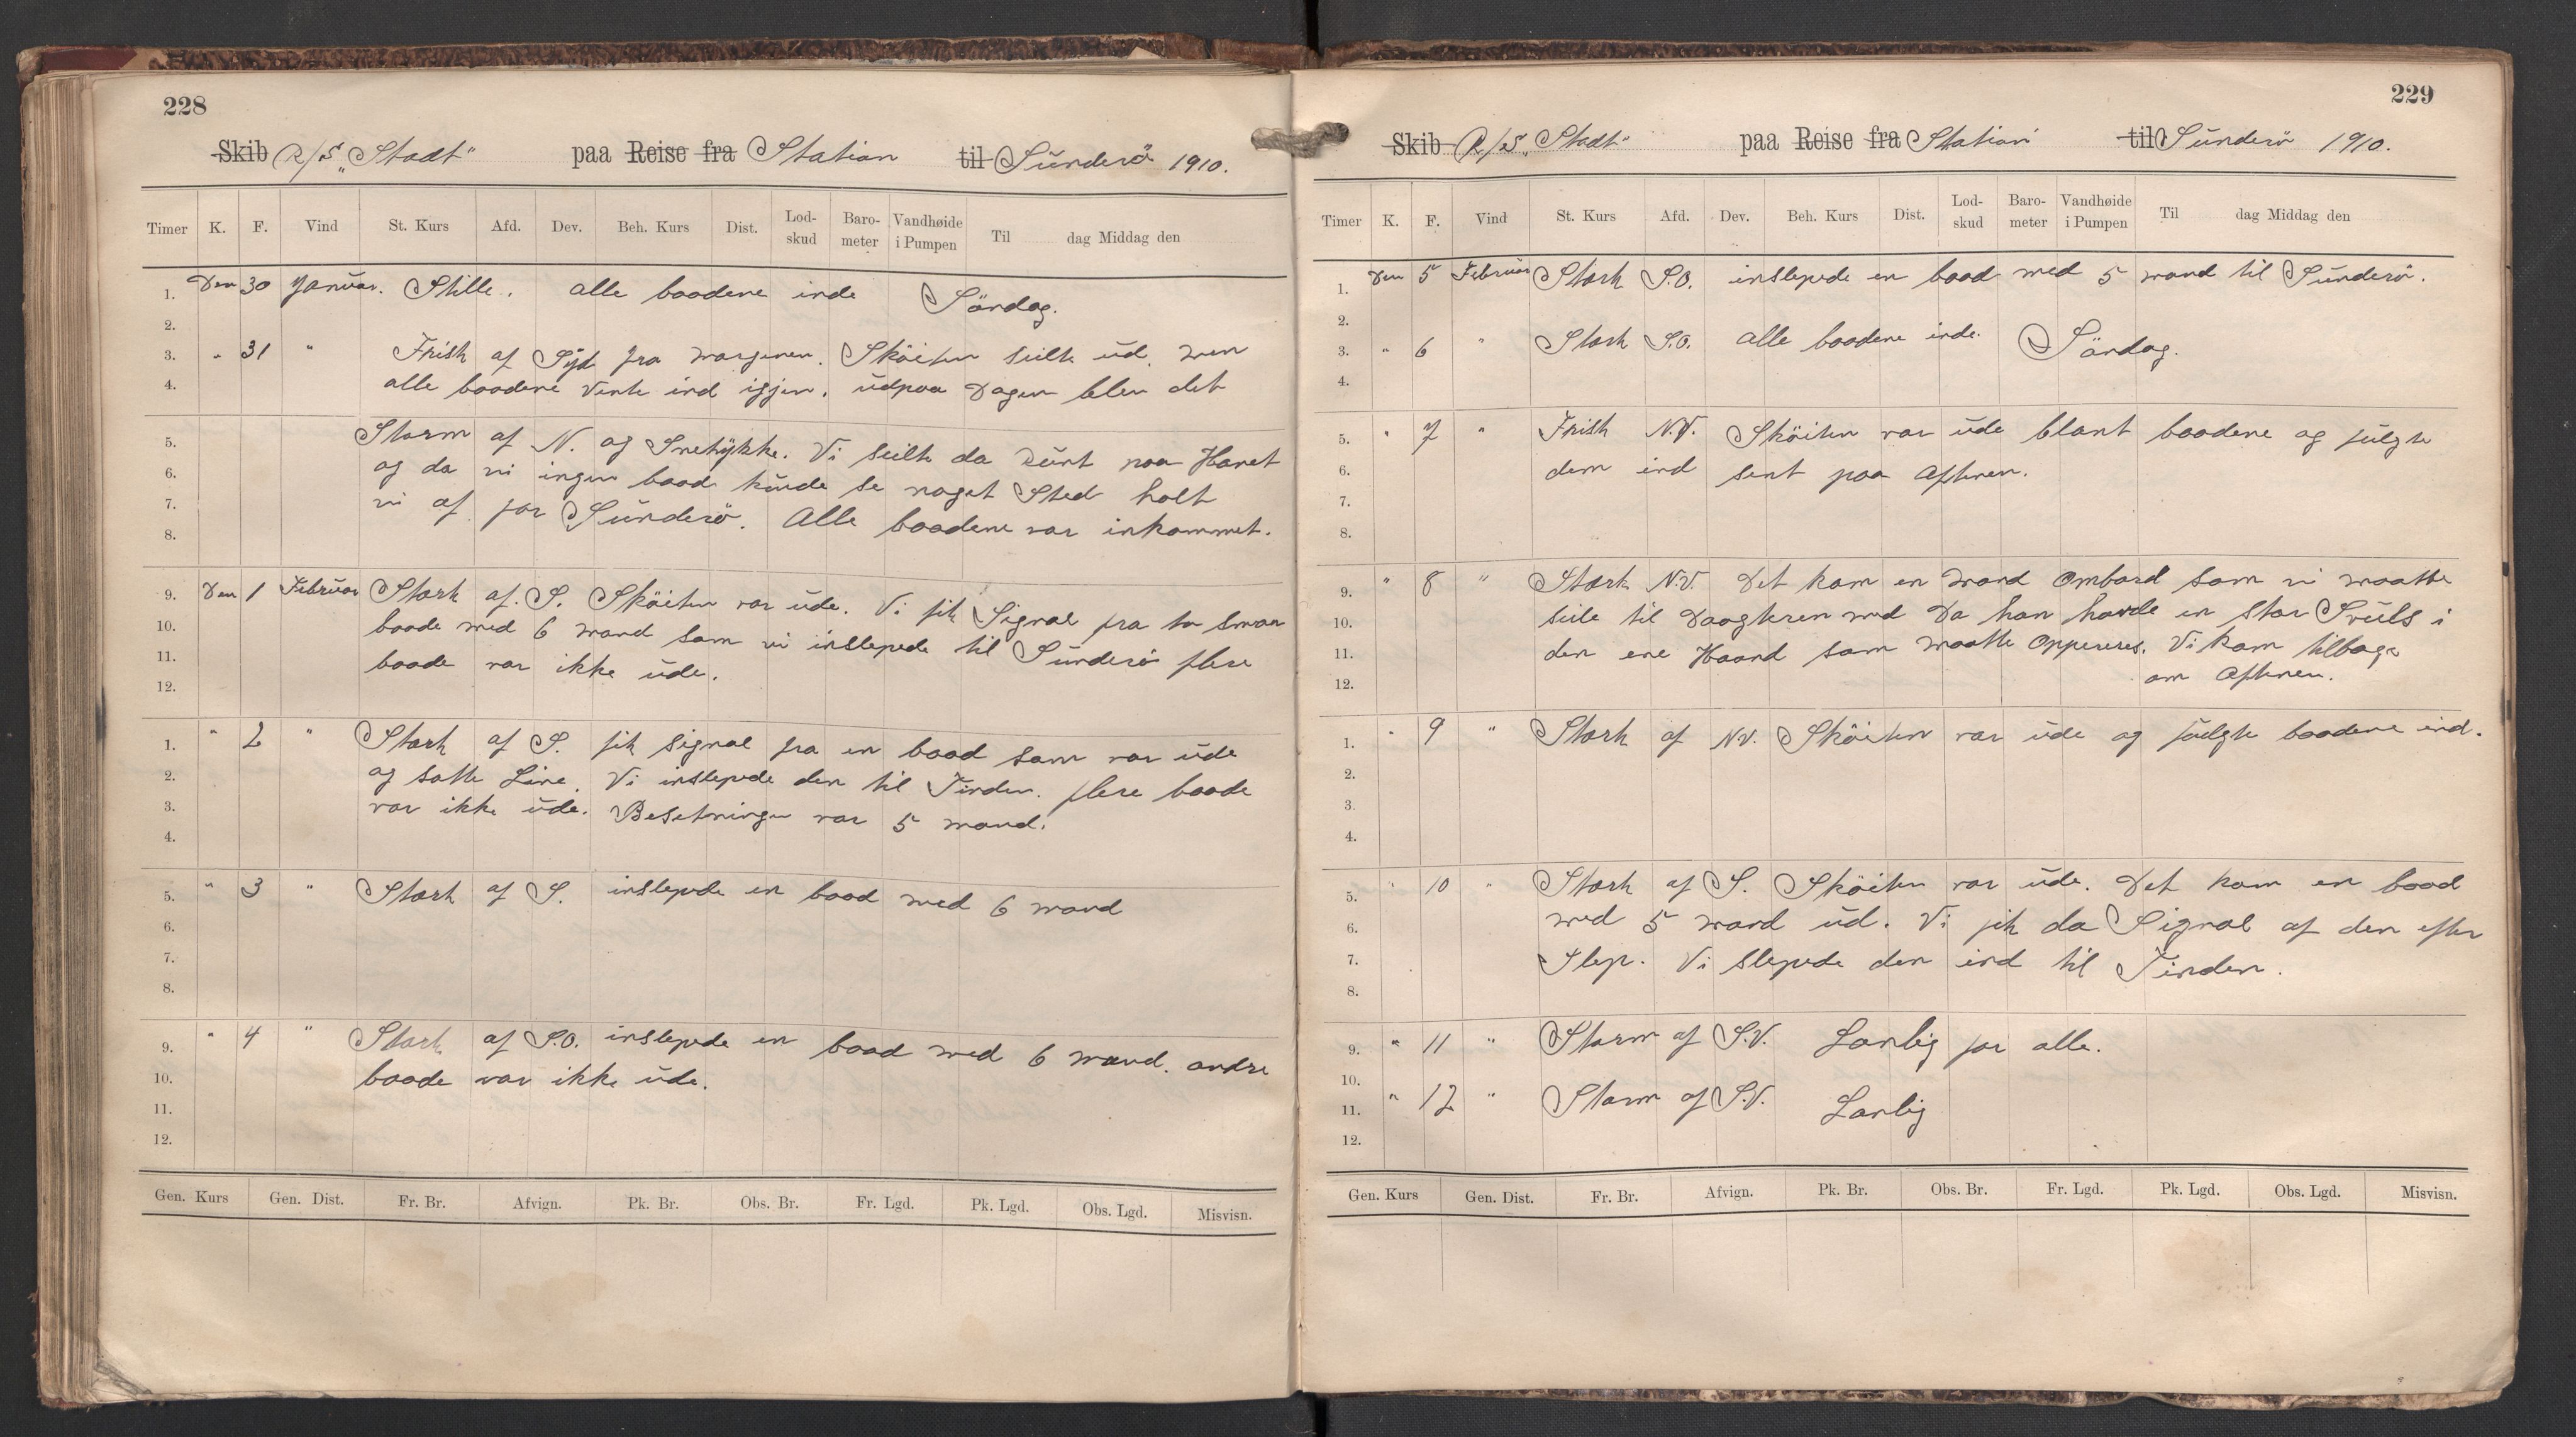 228
Skib R/S „Stadt" paa Reise fra Station til Sünderö 1910.
Timer K. F. Vind St. Kurs Afd. Dev. Beh. Kurs Dist. Lod-skud Baro-meter Vandhøide i Pumpen Til dag Middag den
1. Den 30 Januar. Stille. alle baadene inde Söndag.
2.
3. " 31 " Frisk af Syd fra morgenen. Sköiten seilte üd. men
4. alle baadene vente ind igjen. üdpaa Dagen blev det
5. Storm af N. og Snetykke. Vi seilte da Rünt paa Havet
6. og da vi ingen baad künde se noget Sted holt
7. vi af for Sünderö. Alle baadene var inkommet.
8.
9. Den 1 Februar Stærk af. S. Sköiten var üde. Vi fik Signal fra to smaa
10. baade med 6 mand som vi inslepede til Sünderö flere
11. baade var ikke üde.
12.
1. " 2 " Stærk af S. fik signal fra en baad som var üde
2. og satte Line. Vi inslepede den til Tinden. flere baade
3. var ikke üde. Besetningen var 5 mand.
4.
5. " 3 " Stærk af S. inslepede en baad med 6 mand
6.
7.
8.
9. " 4 " Stærk af S.O. inslepede en baad med 6 mand. andre
10. baade var ikke üde.
11.
12.
Gen. Kurs Gen. Dist. Fr. Br. Afvign. Pk. Br. Obs. Br. Fr. Lgd. Pk. Lgd. Obs. Lgd. Misvisn.
229
Skib R/S „Stadt" paa Reise fra Station til Sünderö 1910.
Timer K. F. Vind St. Kurs Afd. Dev. Beh. Kurs Dist. Lod-skud Baro-meter Vandhøide i Pumpen Til dag Middag den
1. Den 5 Februar Stærk S.O. inslepede en baad med 5 mand til Sünderö.
2.
3. " 6 " Stærk S.O. alle baadene inde. Söndag.
4.
5. " 7 " Frisk N.V. Sköiten var üde blant baadene og fülgte
6. dem ind sent paa Aftenen.
7.
8.
9. " 8 " Stærk N.V. Det kom en Mand Ombord som vi maatte
10. seile til Daagteren med Da han havde en stor Svüls i
11. den ene Haand som maatte Oppereres. Vi kom tilbage
12. om Aftenen.
1. " 9 " Stærk af NV. Sköiten var üde og fülgte baadene ind.
2.
3.
4.
5. " 10 " Stærk af S. Sköiten var üde. Det kom en baad
6. med 5 mand üd. Vi fik da Signal af den efter
7. Slep. Vi slepede den ind til Tinden.
8.
9. " 11 " Storm af S.V. Lanlig for alle.
10.
11. " 12 " Storm af S.V. Lanlig
12.
Gen. Kurs Gen. Dist. Fr. Br. Afvign. Pk. Br. Obs. Br. Fr. Lgd. Pk. Lgd. Obs. Lgd. Misvisn.